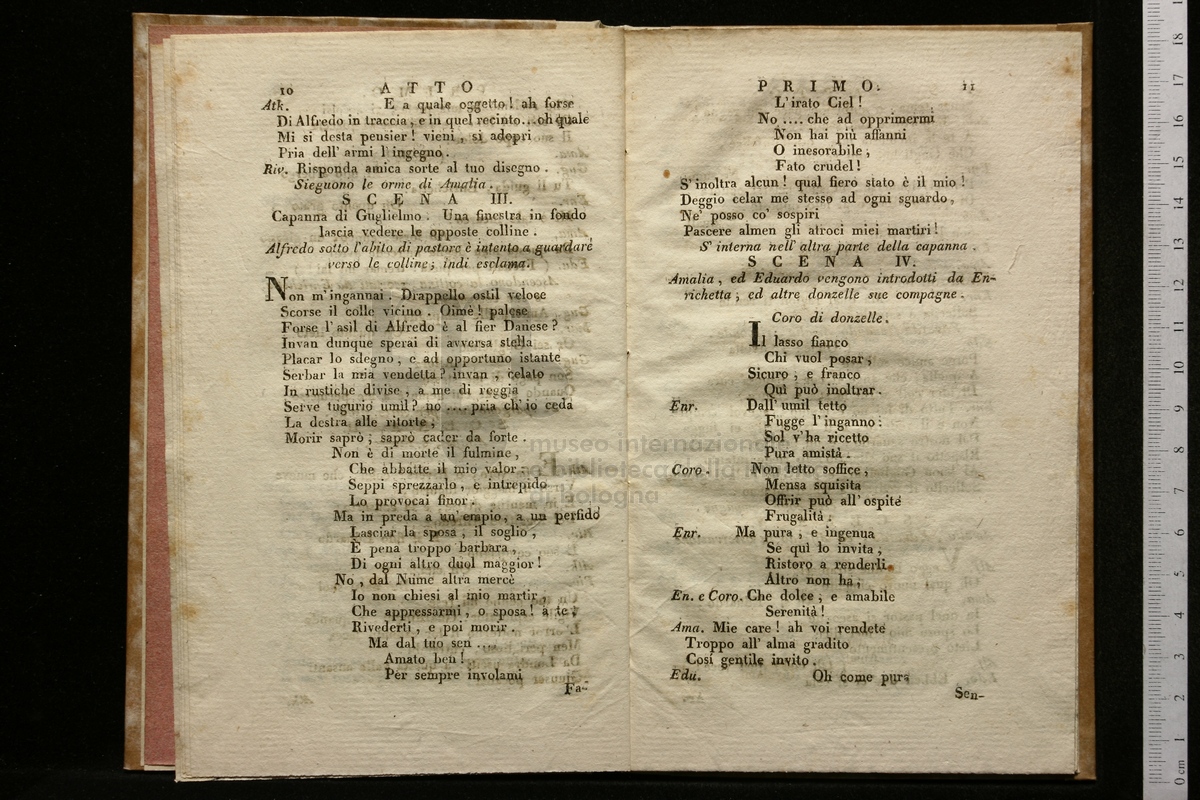 10 ATTO
Atk. E a quale oggetto! ah forse
Di Alfredo in traccia, e in quel recinto...oh quale
Mi si desta pensier! vieni, si adopri
Pria dell' armi l'ingegno.
Riv. Risponda amica sorte al tuo disegno.
Sieguono le orme di Amalia.
SCENA III.
Capanna di Guglielmo. Una finestra in fondo
lascia vedere le opposte colline.
Alfredo sotto l'abito di pastore è intento a guardare
verso le colline; indi esclama.
Non m'ingannai. Drappello ostil veloce
Scorse il colle vicino. Oimè! palese
Forse l'asil di Alfredo è al fier Danese?
Invan dunque sperai di avversa stella
Placar lo sdegno, e ad opportuno istante
Serbar la mia vendetta? invan, celato
In rustiche divise, a me di reggia
Serve tugurio umil? no ....pria ch'io ceda
La destra alle ritorte,
Morir saprò; saprò cader da forte.
Non è di morte il fulmine,
Che abbatte il mio valor:
Seppi sprezzarlo, e intrepido
Lo provocai finor.
Ma in preda a un'empio, a un perfido
Lasciar la sposa, il soglio,
È pena troppo barbara,
Di ogni altro duol maggior!
No, dal Nume altra mercè
Io non chiesi al mio martir,
Che appressarmi, o sposa! a te,
Rivederti, e poi morir.
Ma dal tuo sen ....
Amato ben!
Per sempre involami
Fa-
PRIMO. 11
L'irato Ciel!
No ....che ad opprimermi
Non hai più affanni
O inesorabile,
Fato crudel!
S'inoltra alcun! qual fiero stato è il mio!
Deggio celar me stesso ad ogni sguardo,
Ne' posso co' sospiri
Pascere almen gli atroci miei martiri!
S'interna nell'altra parte della capanna.
SCENA IV.
Amalia, ed Eduardo vengono introdotti da En-
richetta; ed altre donzelle sue compagne.
Coro di donzelle.
Il lasso fianco
Chi vuol posar,
Sicuro, e franco
Quì può inoltrar.
Enr. Dall'umil tetto
Fugge l'inganno:
Sol v'ha ricetto
Pura amistà.
Coro. Non letto soffice,
Mensa squisita
Offrir può all'ospite
Frugalità.
Enr. Ma pura, e ingenua
Se quì lo invita,
Ristoro a renderli
Altro non ha;
En. e Coro. Che dolce, e amabile
Serenità!
Ama. Mie care! ah voi rendete
Troppo all'alma gradito
Così gentile invito.
Edu. Oh come pura
Sen-
museo internazionale
e biblioteca della
di bologna
0 cm 1 2 3 4 5 6 7 8 9 10 11 12 13 14 15 16 17 18